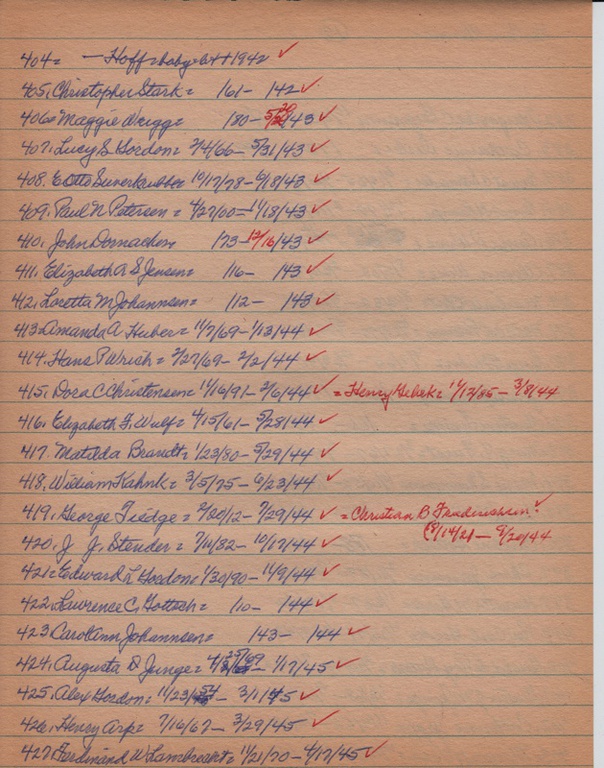 404= — Hoff=baby=b++1942 ✓
405, Christopher Stark = /61 – /42 ✓
406= Maggie = /80 – 5/20/43 ✓
407, Lucy S Gordon = 2/4/66 – 5/31/43 ✓
408. E Otto Suverkrubbe 10/17/78 – 6/18/43 ✓
409. Paul N Petersen = 4/27/00 = 11/18/43 ✓
410, John /73 – 12/16/43 ✓
411, Elizabeth A S Jensen = /16 – /43 ✓
412, Loretta M Johannsen = /12 – /43 ✓
413=Amanda A Huber = 11/7/69 – 1/13/44 ✓
414. Hans P Wrich = 2/27/69 – 2/2/44 ✓
415, Dora C Christensen = 11/16/91 – 3/6/44 ✓ = Henry = 11/17/85 – 3/8/44
416, Elizabeth F. Wulf = 4/15/61 – 5/28/44 ✓
417. Matilda Brandt = 1/23/80 – 5/29/44 ✓
418, William Kahnk = 3/5/75 – 6/23/44 ✓
419, George Tiedge = 2/20/12 – 7/29/44 ✓ = Christian B ✓
(8/14/21 – 9/20/44
420, J J. Stender = 7/11/82 – 10/17/44 ✓
421=Edward L Gordon = 1/30/90 – 11/9/44 ✓
422, Lawrence C, Gottsch = /10 – /44 ✓
423, CarolAnn Johannsen = /43 – /44 ✓
424, Augusta D Junge = 4/25/69 – 1/17/45 ✓
425, Alex Gordon = 11/23/54 – 3/1/45 ✓
426, Henry Arp = 7/16/67 – 3/29/45 ✓
427, Ferdinand W Lambrecht = 11/21/70 – 4/17/45 ✓